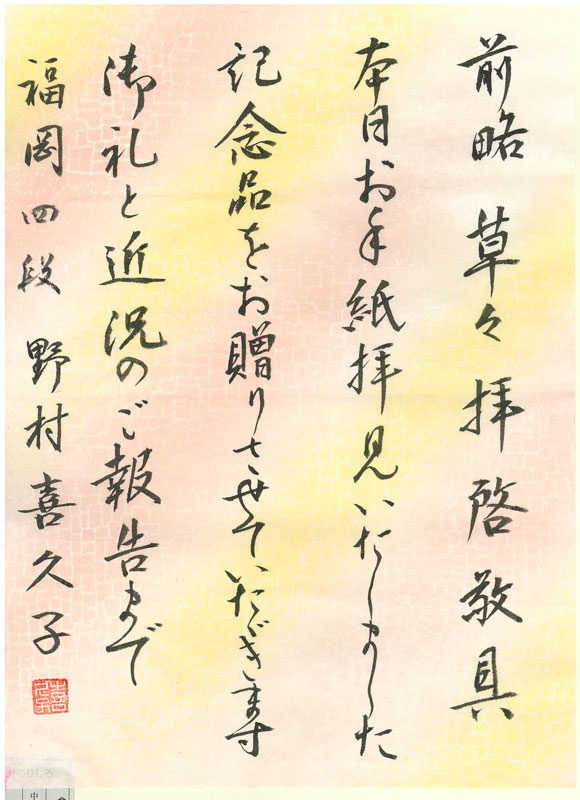 前略 草々 拝啓 敬具
本日お手紙拝見いたしました
記念品をお贈りさせていただきます
御礼と近況のご報告まで
福岡 四段 野村喜久子
のりしろ
中